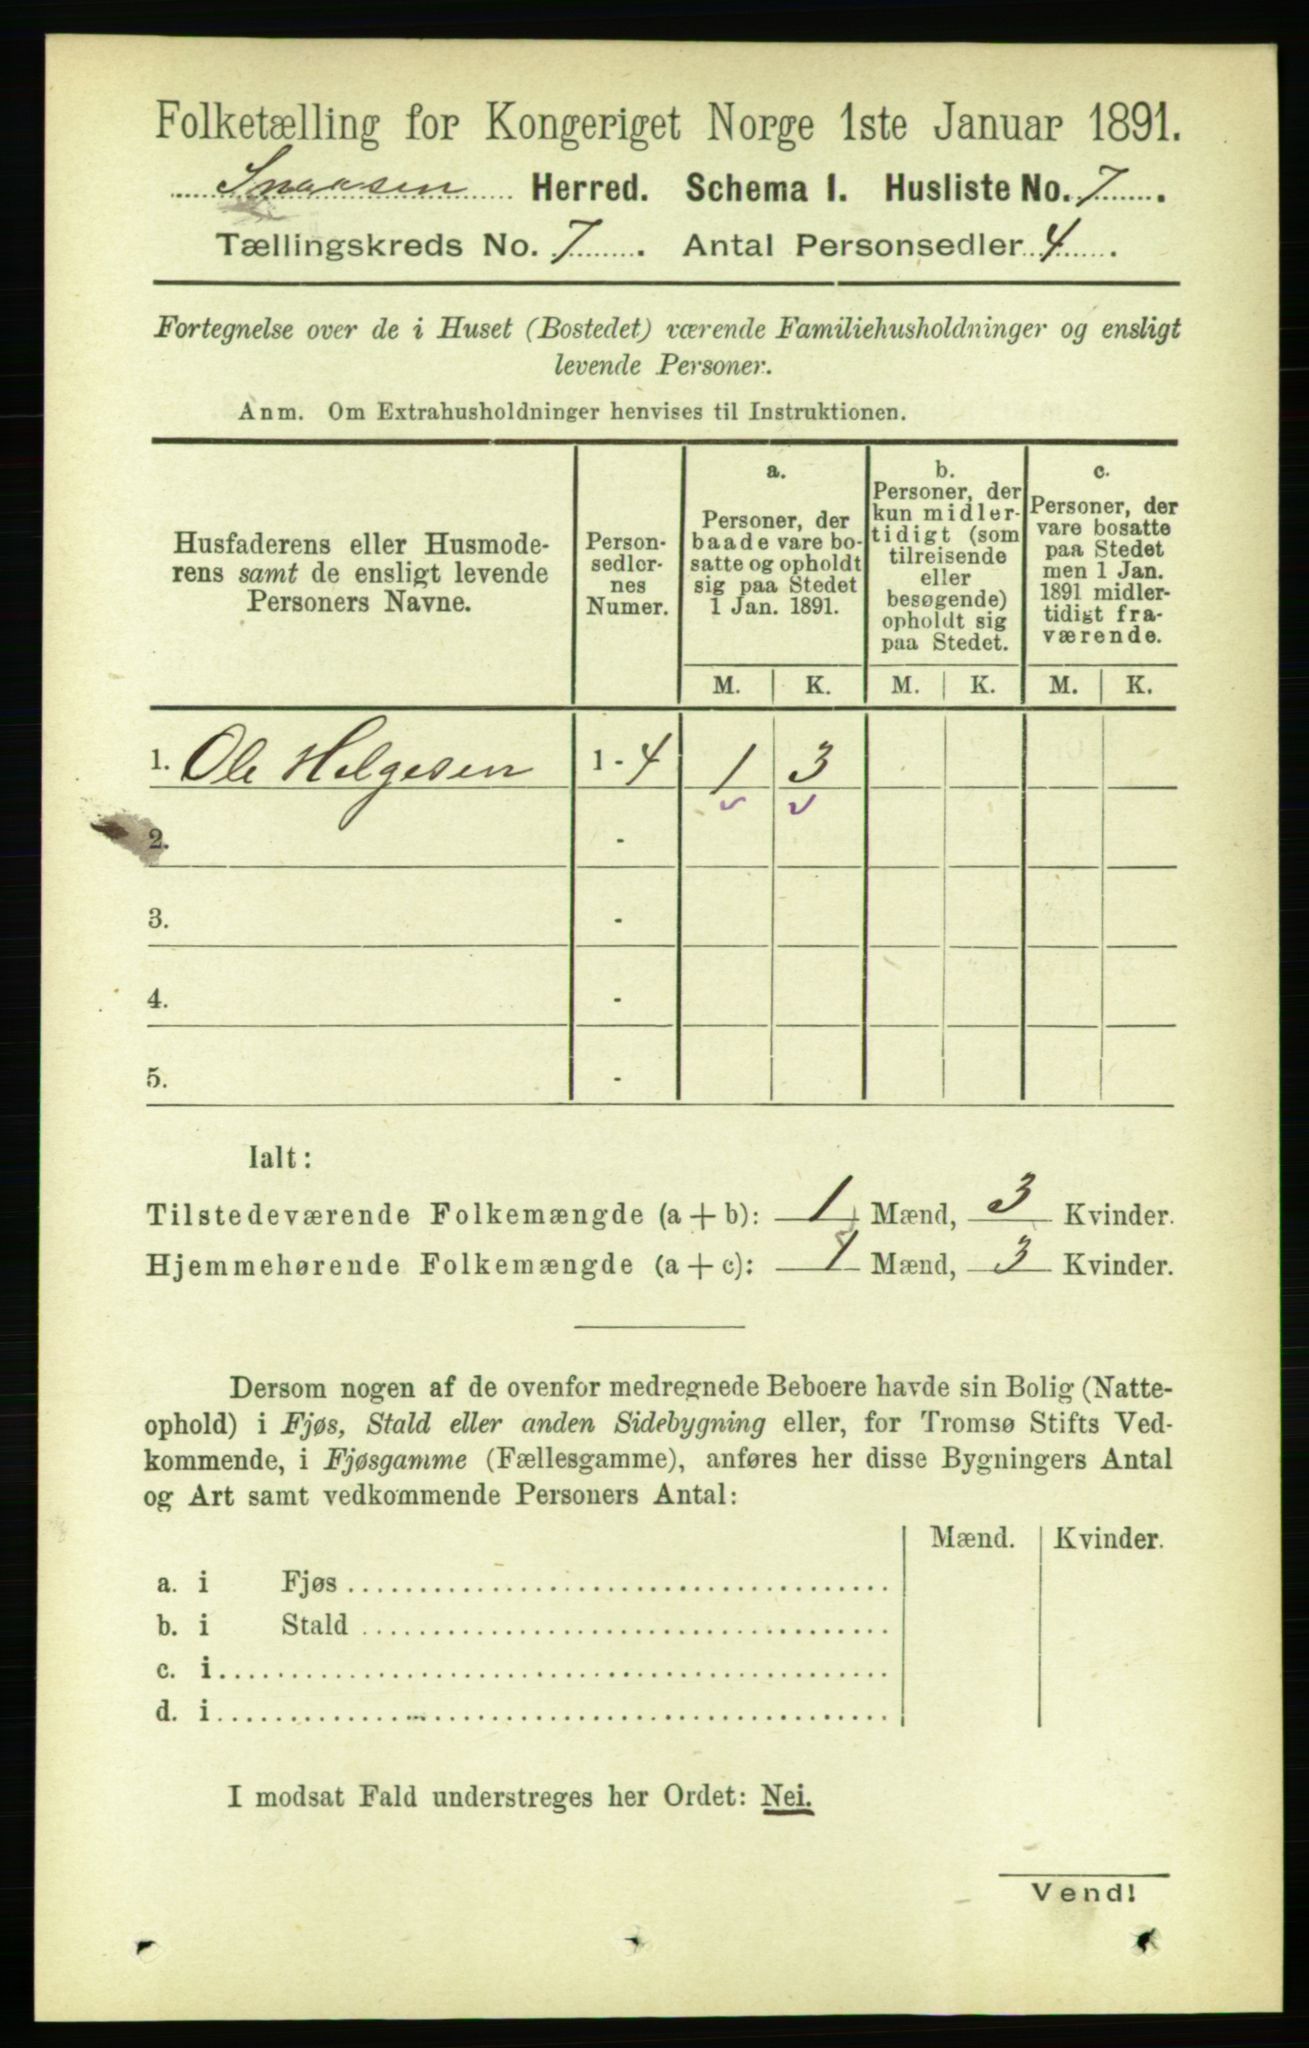 Folketælling for Kongeriget Norge 1ste Januar 1891.
Snaasen Herred. Schema I. Husliste No. 7.
Tællingskreds No. 7. Antal Personsedler 4.
Fortegnelse over de i Huset (Bostedet) værende Familiehusholdninger og ensligt
levende Personer.
Anm. Om Extrahusholdninger henvises til Instruktionen.
Husfaderens eller Husmode-
rens samt de ensligt levende
Personers Navne.
Person-
sedler-
nes
Numer.
a.
Personer, der
baade vare bo-
satte og opholdt
sig paa Stedet
1 Jan. 1891.
b.
Personer, der
kun midler-
tidigt (som
tilreisende
eller
besøgende)
opholdt sig
paa Stedet.
c.
Personer, der
vare bosatte
paa Stedet
men 1 Jan.
1891 midler-
tidigt fra-
værende.
M. K. M. K. M. K.
1. Ole Helgesen 1 - 4 1 3
2. -
3. -
4. -
5. -
Ialt:
Tilstedeværende Folkemængde (a + b): 1 Mænd, 3 Kvinder.
Hjemmehørende Folkemængde (a + c): 1 Mænd, 3 Kvinder.
Dersom nogen af de ovenfor medregnede Beboere havde sin Bolig (Natte-
ophold) i Fjøs, Stald eller anden Sidebygning eller, for Tromsø Stifts Ved-
kommende, i Fjøsgamme (Fællesgamme), anføres her disse Bygningers Antal
og Art samt vedkommende Personers Antal:
Mænd. Kvinder.
a. i Fjøs
b. i Stald
c. i
d. i
I modsat Fald understreges her Ordet: Nei.
Vend!